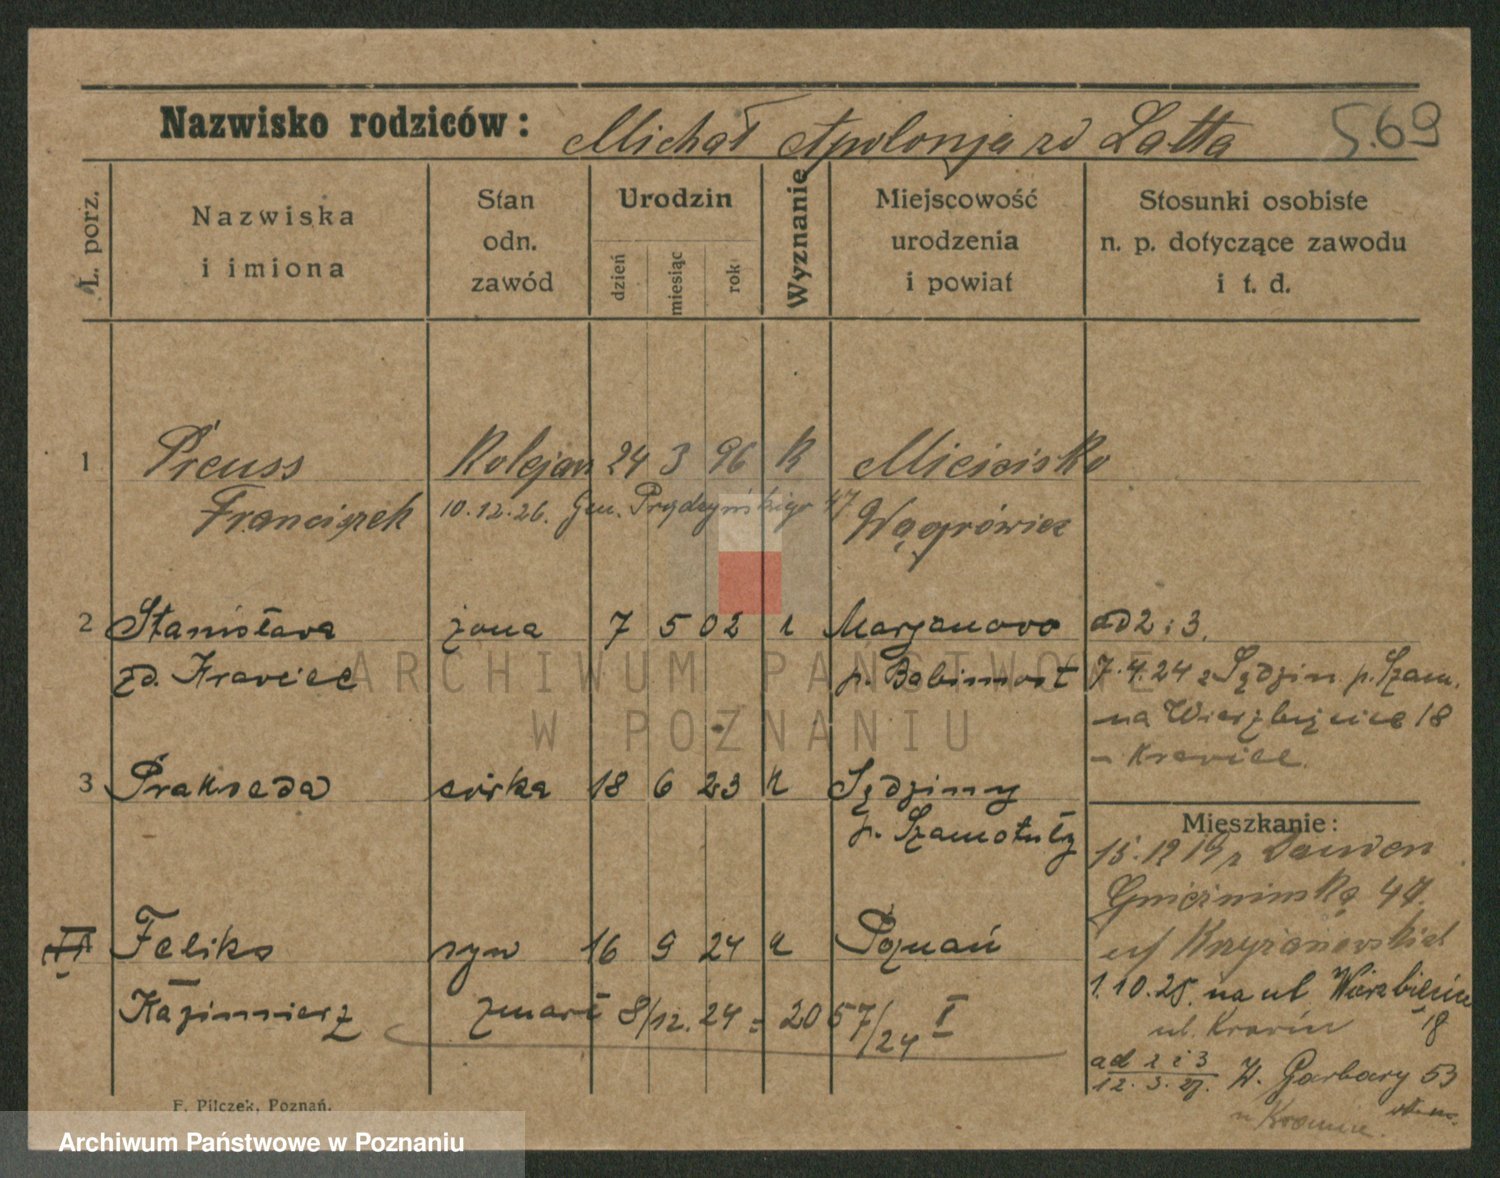 Nazwisko rodziców: Michał Apolonja zd Latta 569
L. porz.
Nazwiska
i imiona
Stan
odn.
zawód
Urodzin
dzień
miesiąc
rok
Wyznanie
Miejscowość
urodzenia
i powiat
Stosunki osobiste
n. p. dotyczące zawodu
i t. d.
1 Preuss Kolejarz 24 3 96 k Mieścisko
Franciszek 10.12.26. Gen. Prądzyńskiego 47 Wągrówiec
2 Stanisława żona 7 5 02 k Marjanowo ad 2 i 3.
zd. Krawiec p. Babimost 7.4.24 z Sędzin p. Szam.
na Wierzbięcice 18
- Krawiec.
3 Prakseda córka 18 6 23 k Sędziny
p. Szamotuły
Mieszkanie:
15.12 19 z
Gnieźnieńska 47.
II Feliks syn 16 9 24 k Poznań
u/
Kazimierz zmarł 8/12. 24 = 2057/24 I
1.10.25. na ul Wierzbięcice
18
ad 2 i 3 W. Garbary 53
12. 3. 27.
F. Pilczek, Poznań.
ARCHIWUM PAŃSTWOWE
W POZNANIU
Archiwum Państwowe w Poznaniu